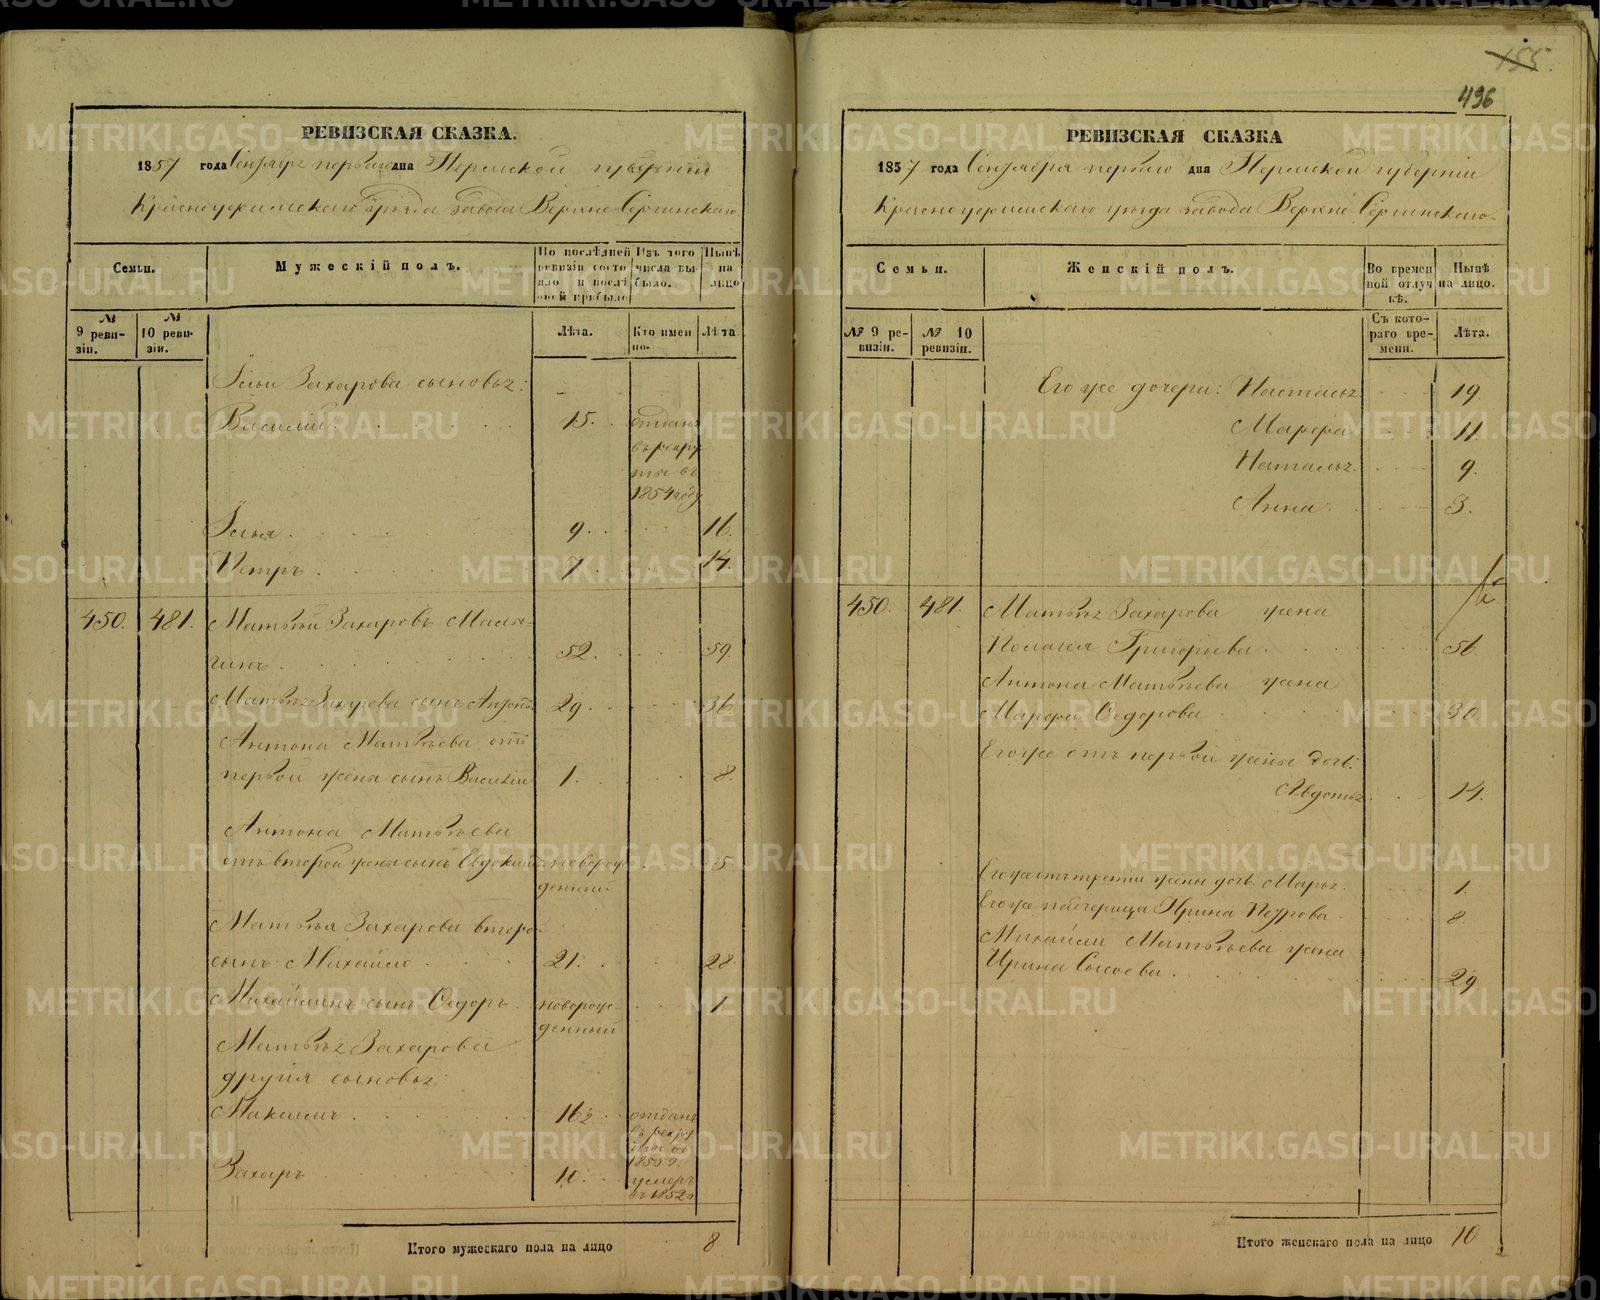 155.
496
РЕВИЗСКАЯ СКАЗКА.
1857 года Сентября первого дня Пермской губернии
Красноуфимскаго уезда завода Верхне Сергинскаго
Семьи.
Мужескій полъ.
По последней ревизіи состояло и после оной прибыло
Изъ того числа выбыло.
Ныне на лицо
№ 9 ревизіи.
№ 10 ревизіи.
Лѣта.
Кто именно.
Лѣта
Ильи Захарова сыновья:
Василій 15. отданъ въ рекруты въ 1854 году
Илья 9. 16.
Петръ 7. 14.
450. 481. Матвѣй Захаровъ
52. 59.
Матвѣя Захарова сынъ Антонъ 29. 36
Антона Матвѣева отъ
первой жены сынъ Василій 1. 8.
Антона Матвѣева
отъ второй жены сынъ Евдокимъ новорожденный 5
Матвѣя Захарова второй
сынъ Михайло 21. 28.
Михайлинъ сынъ Ѳедоръ новорожденный 1.
Матвѣя Захарова
другія сыновья:
Максимъ 16½ отданъ въ рекруты въ
Захаръ 10. умеръ въ 1852 г.
Итого мужескаго пола на лицо 8.
РЕВИЗСКАЯ СКАЗКА
1857 года Сентября первого дня Пермской губерніи
Красноуфимскаго уезда завода Верхне Сергинскаго.
Семьи.
Женскій полъ.
Во временной отлучкѣ.
Нынѣ на лицо.
№ 9 ревизіи.
№ 10 ревизіи.
Съ котораго времени.
Лѣта.
Его же дочери: Настасья 19.
Марфа 11.
Наталья 9.
Анна 3.
450. 481. Матвѣя Захарова жена
Пелагея Григорьева 56.
Антона Матвѣева жена
Марфа Ѳедорова 30
Его же отъ первой жены дочь
Авдотья 14.
Его же отъ третей жены дочь Марья 1.
Его же падчерица Ирина Петрова 8
Михайлы Матвѣева жена
Ирина Сысоева 29
Итого женскаго пола на лицо 10
METRIKI.GASO-URAL.RU